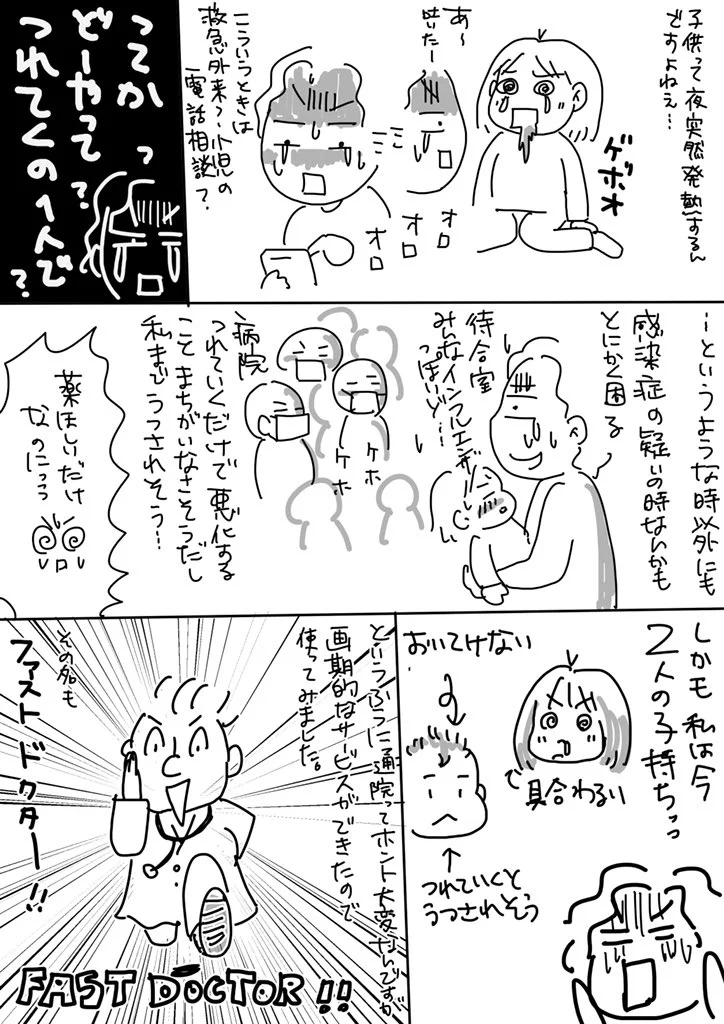 子供って夜突然発熱するん
ですよねぇ…
ゲボオ
あ〜
吐いたー
オロ
オロ
オロ
こういうときは
救急外来?小児の
電話相談?
ってかっ
どーやって?
つれてくの1人で?
…というような時以外にも
感染症の疑いの時なんかも
とにかく困る
待合室
みんなインフルエンザ
っぽいど…
ケホ
ケホ
病院
つれていくだけで悪化する
こと まちがいなさそうだし
私までうつされそう…
薬ほしいだけ
なのにっっ
しかも 私は今
2人の子持ちっっ
具合わるい
おいてけない
つれていくと
うつされそう
というふうに通院ってホント大変なんですが
画期的なサービスができたので
使ってみました。
その名も
ファストドクター!!
FAST DOCTOR!!